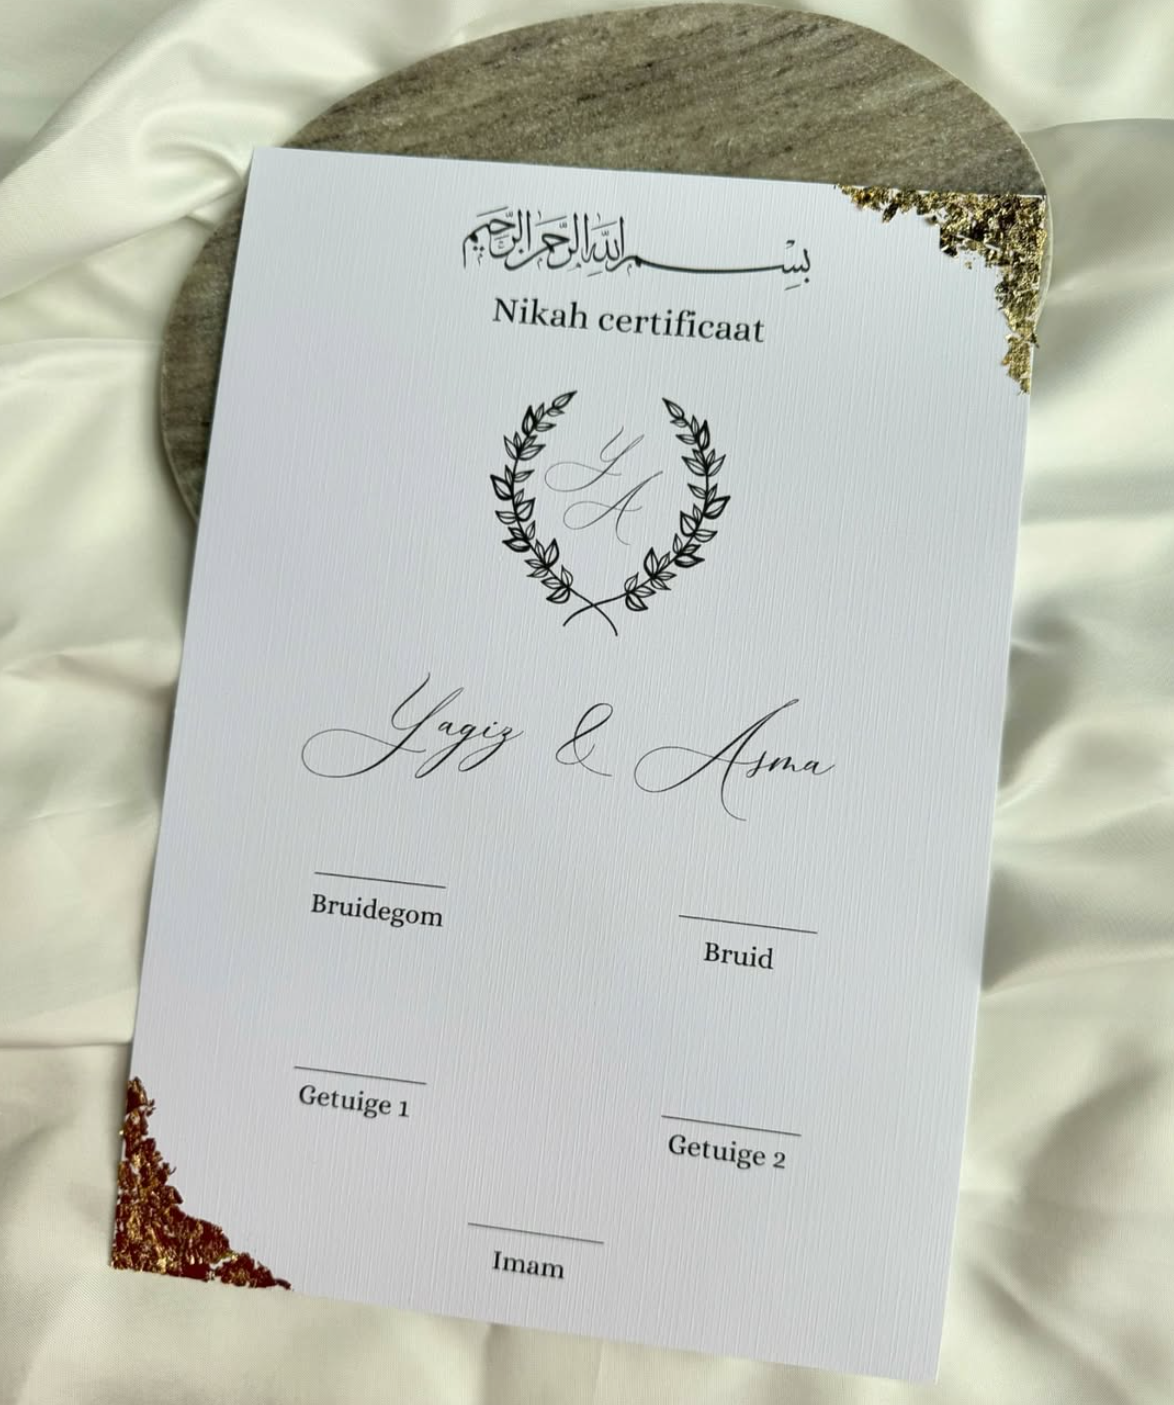 بسم الله الرحمن الرحيم
Nikah certificaat
Y
A
Yagiz & Asma
Bruidegom
Bruid
Getuige 1
Getuige 2
Imam